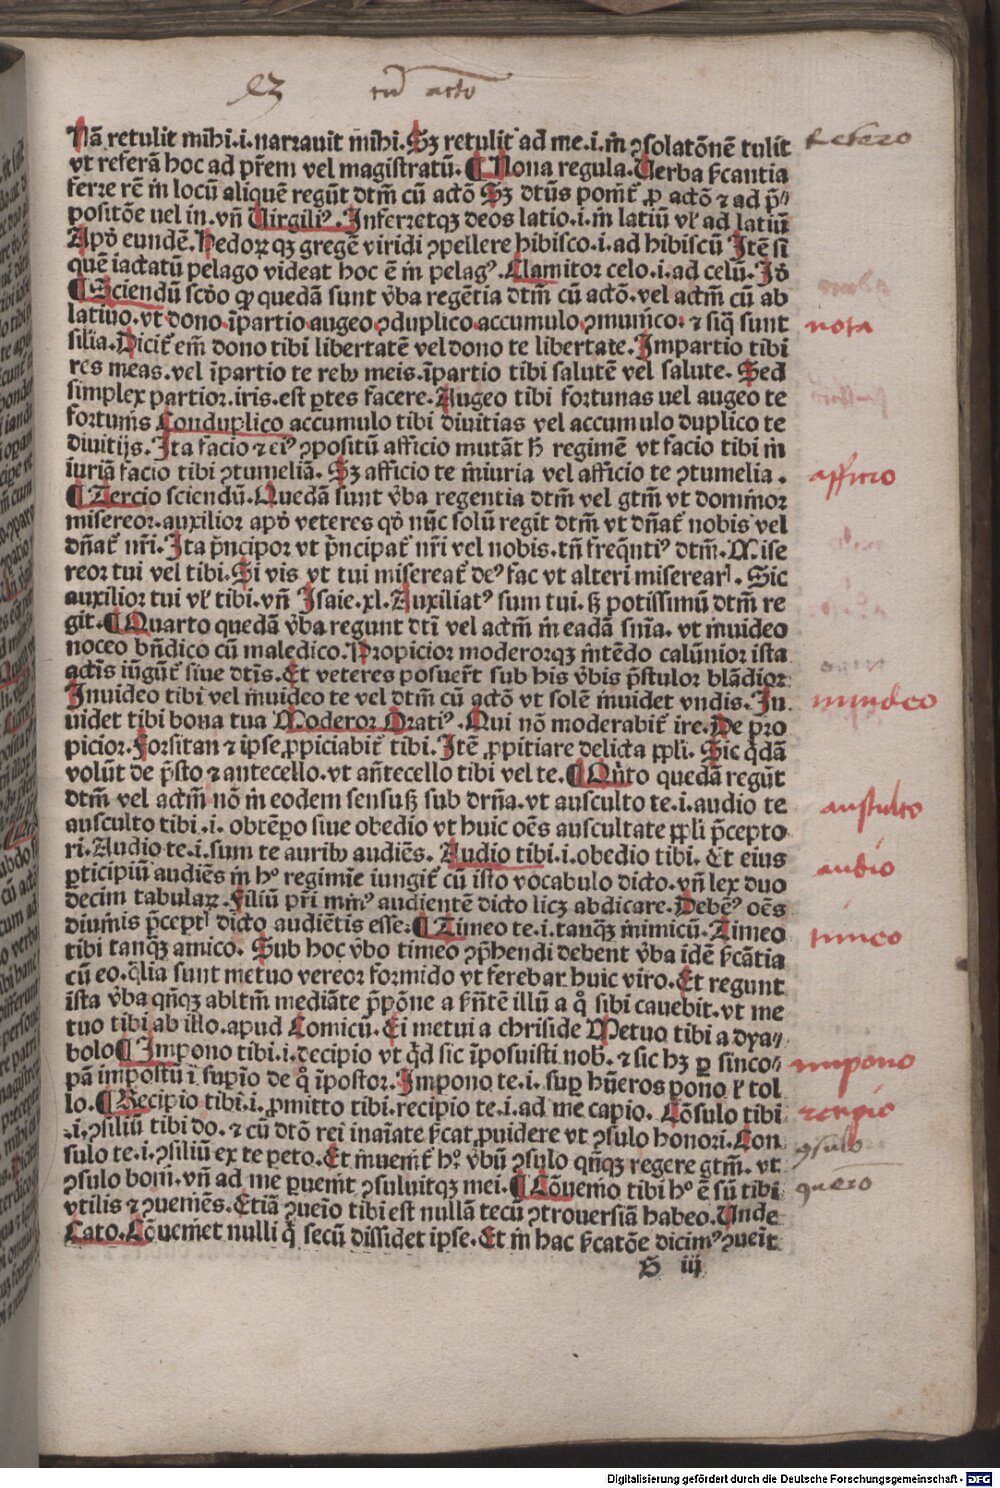 cū acto
Nā retulit mihi.i.narrauit mihi.Sꝫ retulit ad me.i.in ꝯsolatōnē tulit
refero
vt referā hoc ad pr̄em vel magistratū.¶Nona regula.Uerba ſcantia
ferre rē in locū aliquē regūt dtm̄ cū actō Sꝫ dtūs poīt̄ ꝓ actō ⁊ ad p̄-
positōe uel in.vn̄ Uirgiliꝰ.Inferretqꝫ deos latio.i.in latiū vl̓ ad latiū
Apd̓ eundē.Hedorꝝ qꝫ gregē viridi ꝯpellere hibisco.i.ad hibiscū Itē si
quē iactatū pelago videat hoc ē in pelagꝰ.Clamitor celo.i.ad celū.Id̓
¶Sciendū scd̓o qꝙ quedā sunt v̓ba regētia dtm̄ cū actō.vel actm̄ cū ab
latiuo.vt dono.īpartio.augeo.ꝯduplico.accumulo.ꝯmunico.⁊ siq̄ sunt
nota
silia.Dicit̄ em̄ dono tibi libertatē vel dono te libertate.Impartio tibi
res meas.vel īpartio te rebꝰ meis.īpartio tibi salutē vel salute.Sed
simplex partior.iris.est ꝑtes facere.Augeo tibi fortunas uel augeo te
fortunis Conduplico accumulo tibi diuitias vel accumulo duplico te
diuitijs.Ita facio ⁊ eiꝰ ꝯpositū afficio mutāt h̄ regimē vt facio tibi in
iuriā facio tibi ꝯtumeliā.Sꝫ afficio te iniuria vel afficio te ꝯtumelia.
afficio
¶Tercio sciendū.Quedā sunt v̓ba regentia dtm̄ vel gtm̄ vt dominor
misereor.auxilior apd̓ veteres qd̓ nūc solū regit dtm̄ vt dn̄at̄ nobis vel
dn̄at̄ nr̄i.Ita p̄ncipor vt p̄ncipat̄ nr̄i vel nobis.tn̄ freq̄ntiꝰ dtm̄.Mise
reor tui vel tibi.Si vis vt tui misereat̄ deꝰ fac vt alteri miserearl.Sic
auxilior tui vl̓ tibi.vn̄ Isaie.xl.Auxiliatꝰ sum tui.sꝫ potissimū dtm̄ re
git.¶Quarto quedā v̓ba regunt dtī vel actm̄ in eadā sn̄ia.vt inuideo
noceo bn̄dico cū maledico.Propicior moderorqꝫ intēdo calūnior ista
actīs iūgūt̄ siue dtīs.Et veteres posuer̄t sub his v̓bis p̄stulor blādior
Inuideo tibi vel inuideo te vel dtm̄ cū actō vt solē inuidet vndis.In
inuideo
uidet tibi bona tua Moderor Oratiꝰ.Qui nō moderabit̄ ire.De pro
picior.Forsitan ⁊ ipse ꝓpiciabit̄ tibi.Itē ꝓpitiare delicta ppl̓i.Sic q̄dā
volūt de p̄sto ⁊ antecello.vt an̄tecello tibi vel te.¶Qn̄to quedā regūt
dtm̄ vel actm̄ nō in eodem sensu sꝫ sub drn̄a.vt ausculto te.i.audio te
austulto
ausculto tibi.i.obtēpo siue obedio vt huic oēs auscultate ppl̓i p̄cepto
ri.Audio te.i.sum te auribꝰ audiēs.Audio tibi.i.obedio tibi.Et eius
audio
ꝑticipiū audiēs in hꝰ regimie iungit̄ cū isto vocabulo dicto.vn̄ lex duo
decim tabulaꝝ.Filiū pr̄i inimꝰ audientē dicto licꝫ abdicare.Debēꝰ oēs
diuinis p̄ceptl dicto audiētis esse:¶Timeo te.i.tanqꝫ inimicū.Timeo
timeo
tibi tanqꝫ amico.Sub hoc v̓bo timeo ꝯp̄hendi debent v̓ba idē ſcātia
cū eo.q̄lia sunt metuo vereor formido vt ferebar huic viro.Et regunt
ista v̓ba qn̄qꝫ abltm̄ mediāte p̄pōne a ſn̄tē illū a q̊ sibi cauebit.vt me
tuo tibi ab illo.apud Comicū.Ei metui a chriside Metuo tibi a dya-
bolo¶Impono tibi.i.decipio vt q̄d sic īposuisti nob̄.⁊ sic hꝫ ꝑ sinco-
impono
pā impostū ī supīo de q̊ īpostor.Impono te.i.suꝑ hūeros pono l̓ tol
lo.¶Recipio tibi.i.ꝓmitto tibi.recipio te.i.ad me capio.Cōsulo tibi
recipio
.i.ꝯsiliū tibi do.⁊ cū dtō rei inaīate ſcat ꝓuidere vt ꝯsulo honori.Con
ꝯsulo
sulo te.i.ꝯsiliū ex te peto.Et inuenit̄ hꝰ v̓bū ꝯsulo qn̄qꝫ regere gtm̄.vt
ꝯsulo boni.vn̄ ad me ꝑuenit ꝯsuluitqꝫ mei.¶Cōuenio tibi hꝰ ē sū tibi
vtilis ⁊ ꝯueniēs.Etiā ꝯueīo tibi est nullā tecū ꝯtrouersiā habeo.Unde
Cato.Cōueniet nulli q̊ secū dissidet ipse.Et in hac ſcatōe dicimꝰ ꝯueīt
iij
Digitalisierung gefördert durch die Deutsche Forschungsgemeinschaft - DFG